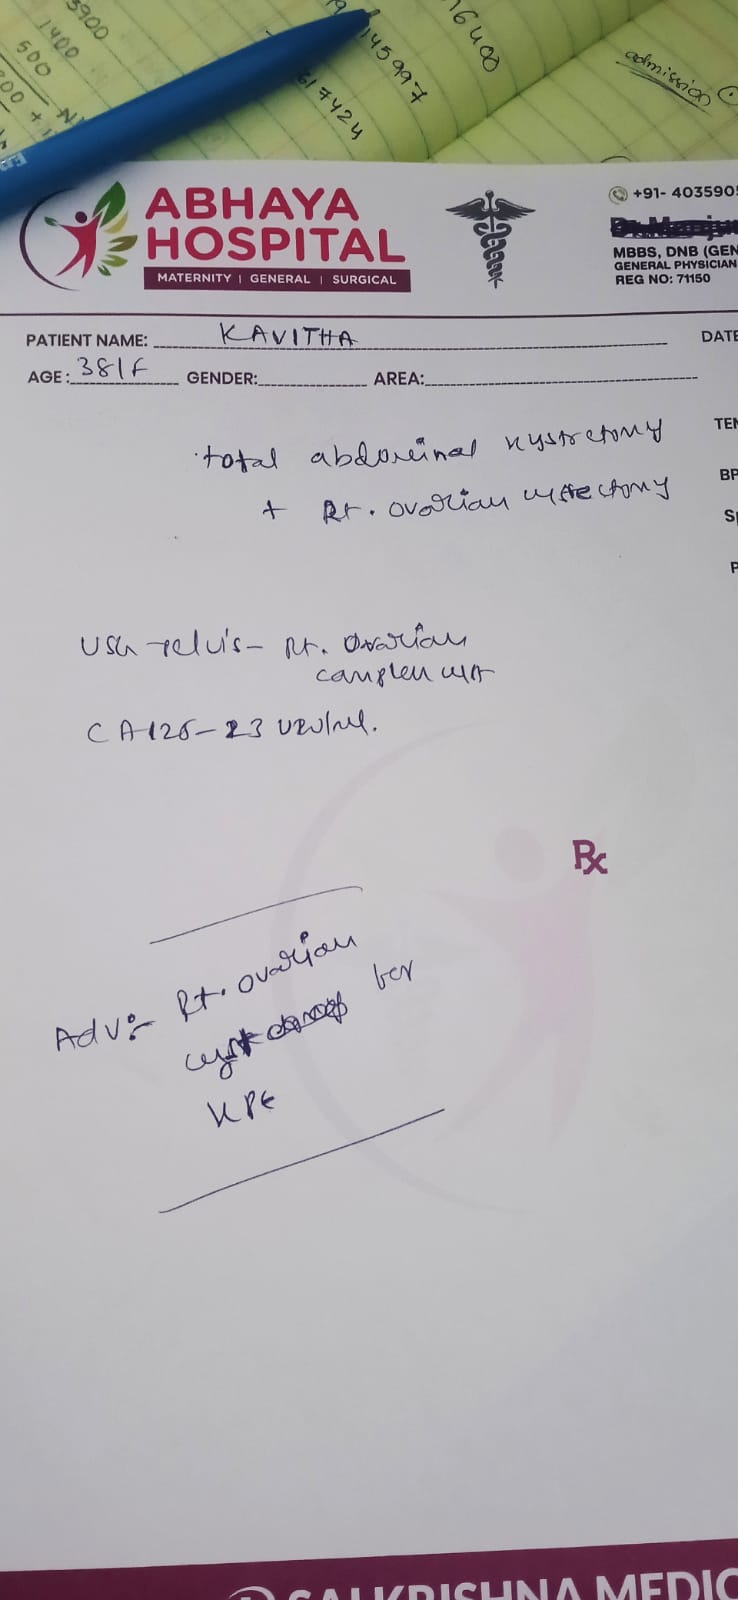 3900
1400
500
16400
145997
617424
admission
ABHAYA
HOSPITAL
MATERNITY | GENERAL | SURGICAL
+91- 403590
MBBS, DNB (GEN
GENERAL PHYSICIAN
REG NO: 71150
PATIENT NAME: KAVITHA
DATE
AGE: 38/F GENDER: AREA:
total abdominal hystrctomy
TEM
+ Rt. ovarian cystectomy
BP
USG pelvis - Rt. Ovarian
complex cyst
CA125 - 23 U/ml.
Rx
Adv:- Rt. ovarian
cyst for
HPE
SAI KRISHNA MEDIC